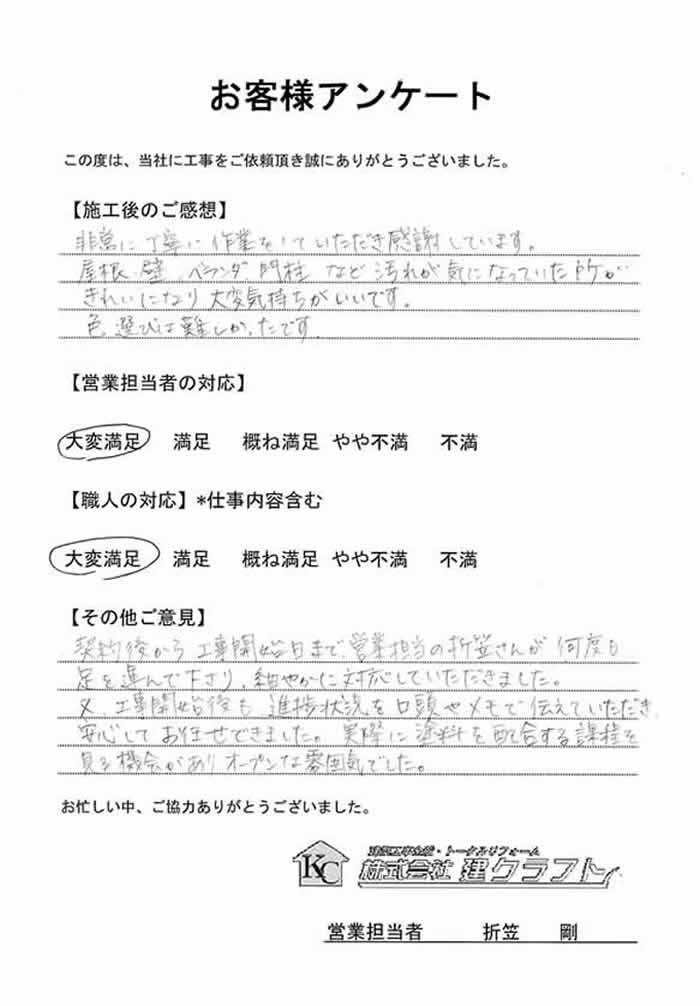 お客様アンケート
この度は、当社に工事をご依頼頂き誠にありがとうございました。
【施工後のご感想】
非常に丁寧に作業をしていただき感謝しています。
屋根、壁、ベランダ、門柱 など汚れが気になっていた所が
きれいになり大変気持ちがいいです。
色選びは難しかったです
【営業担当者の対応】
大変満足 満足 概ね満足 やや不満 不満
【職人の対応】*仕事内容含む
大変満足 満足 概ね満足 やや不満 不満
【その他ご意見】
契約後から工事開始日まで、営業担当の折笠さんが何度も
足を運んで下さり、細やかに対応していただきました。
又、工事開始後も 進捗状況を口頭やメモで伝えていただき
安心してお任せできました。実際に塗料を配合する課程を
見る機会がありオープンな雰囲気でした。
お忙しい中、ご協力ありがとうございました。
建築工事全般・トータルリフォーム
KC 株式会社 建クラフト
営業担当者 折笠 剛